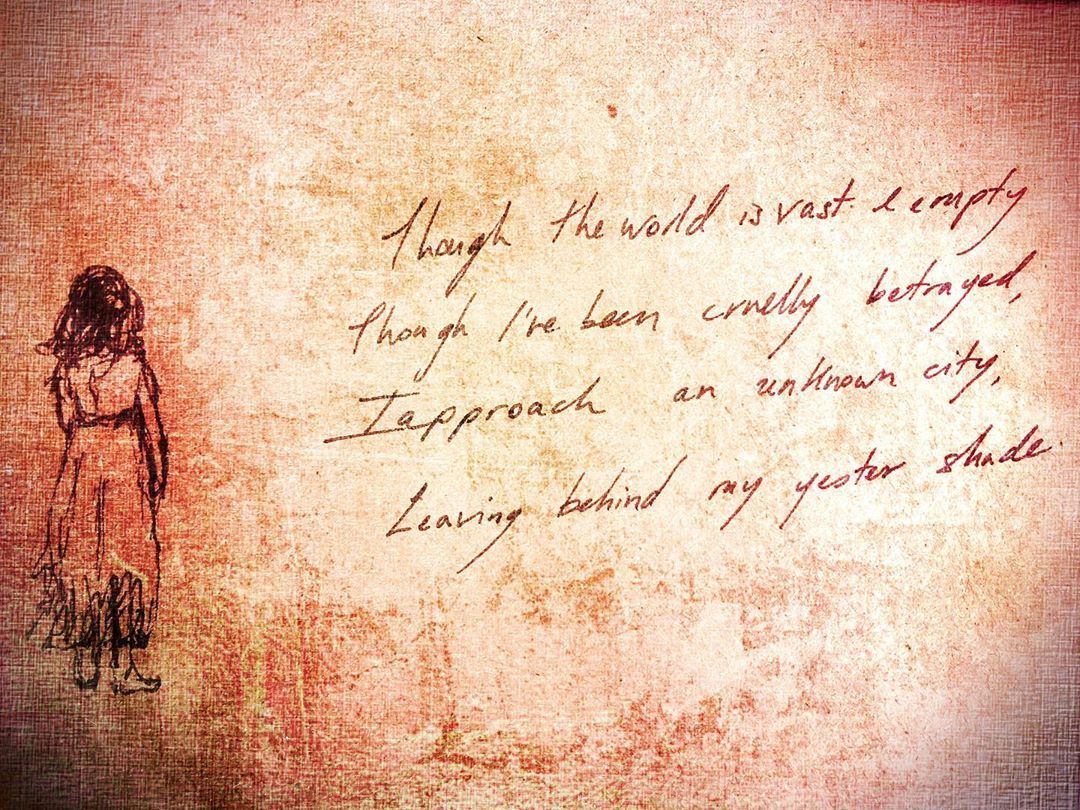 Though the world is vast & empty
Though I've been cruelly betrayed,
I approach an unknown city,
Leaving behind my yester shade.